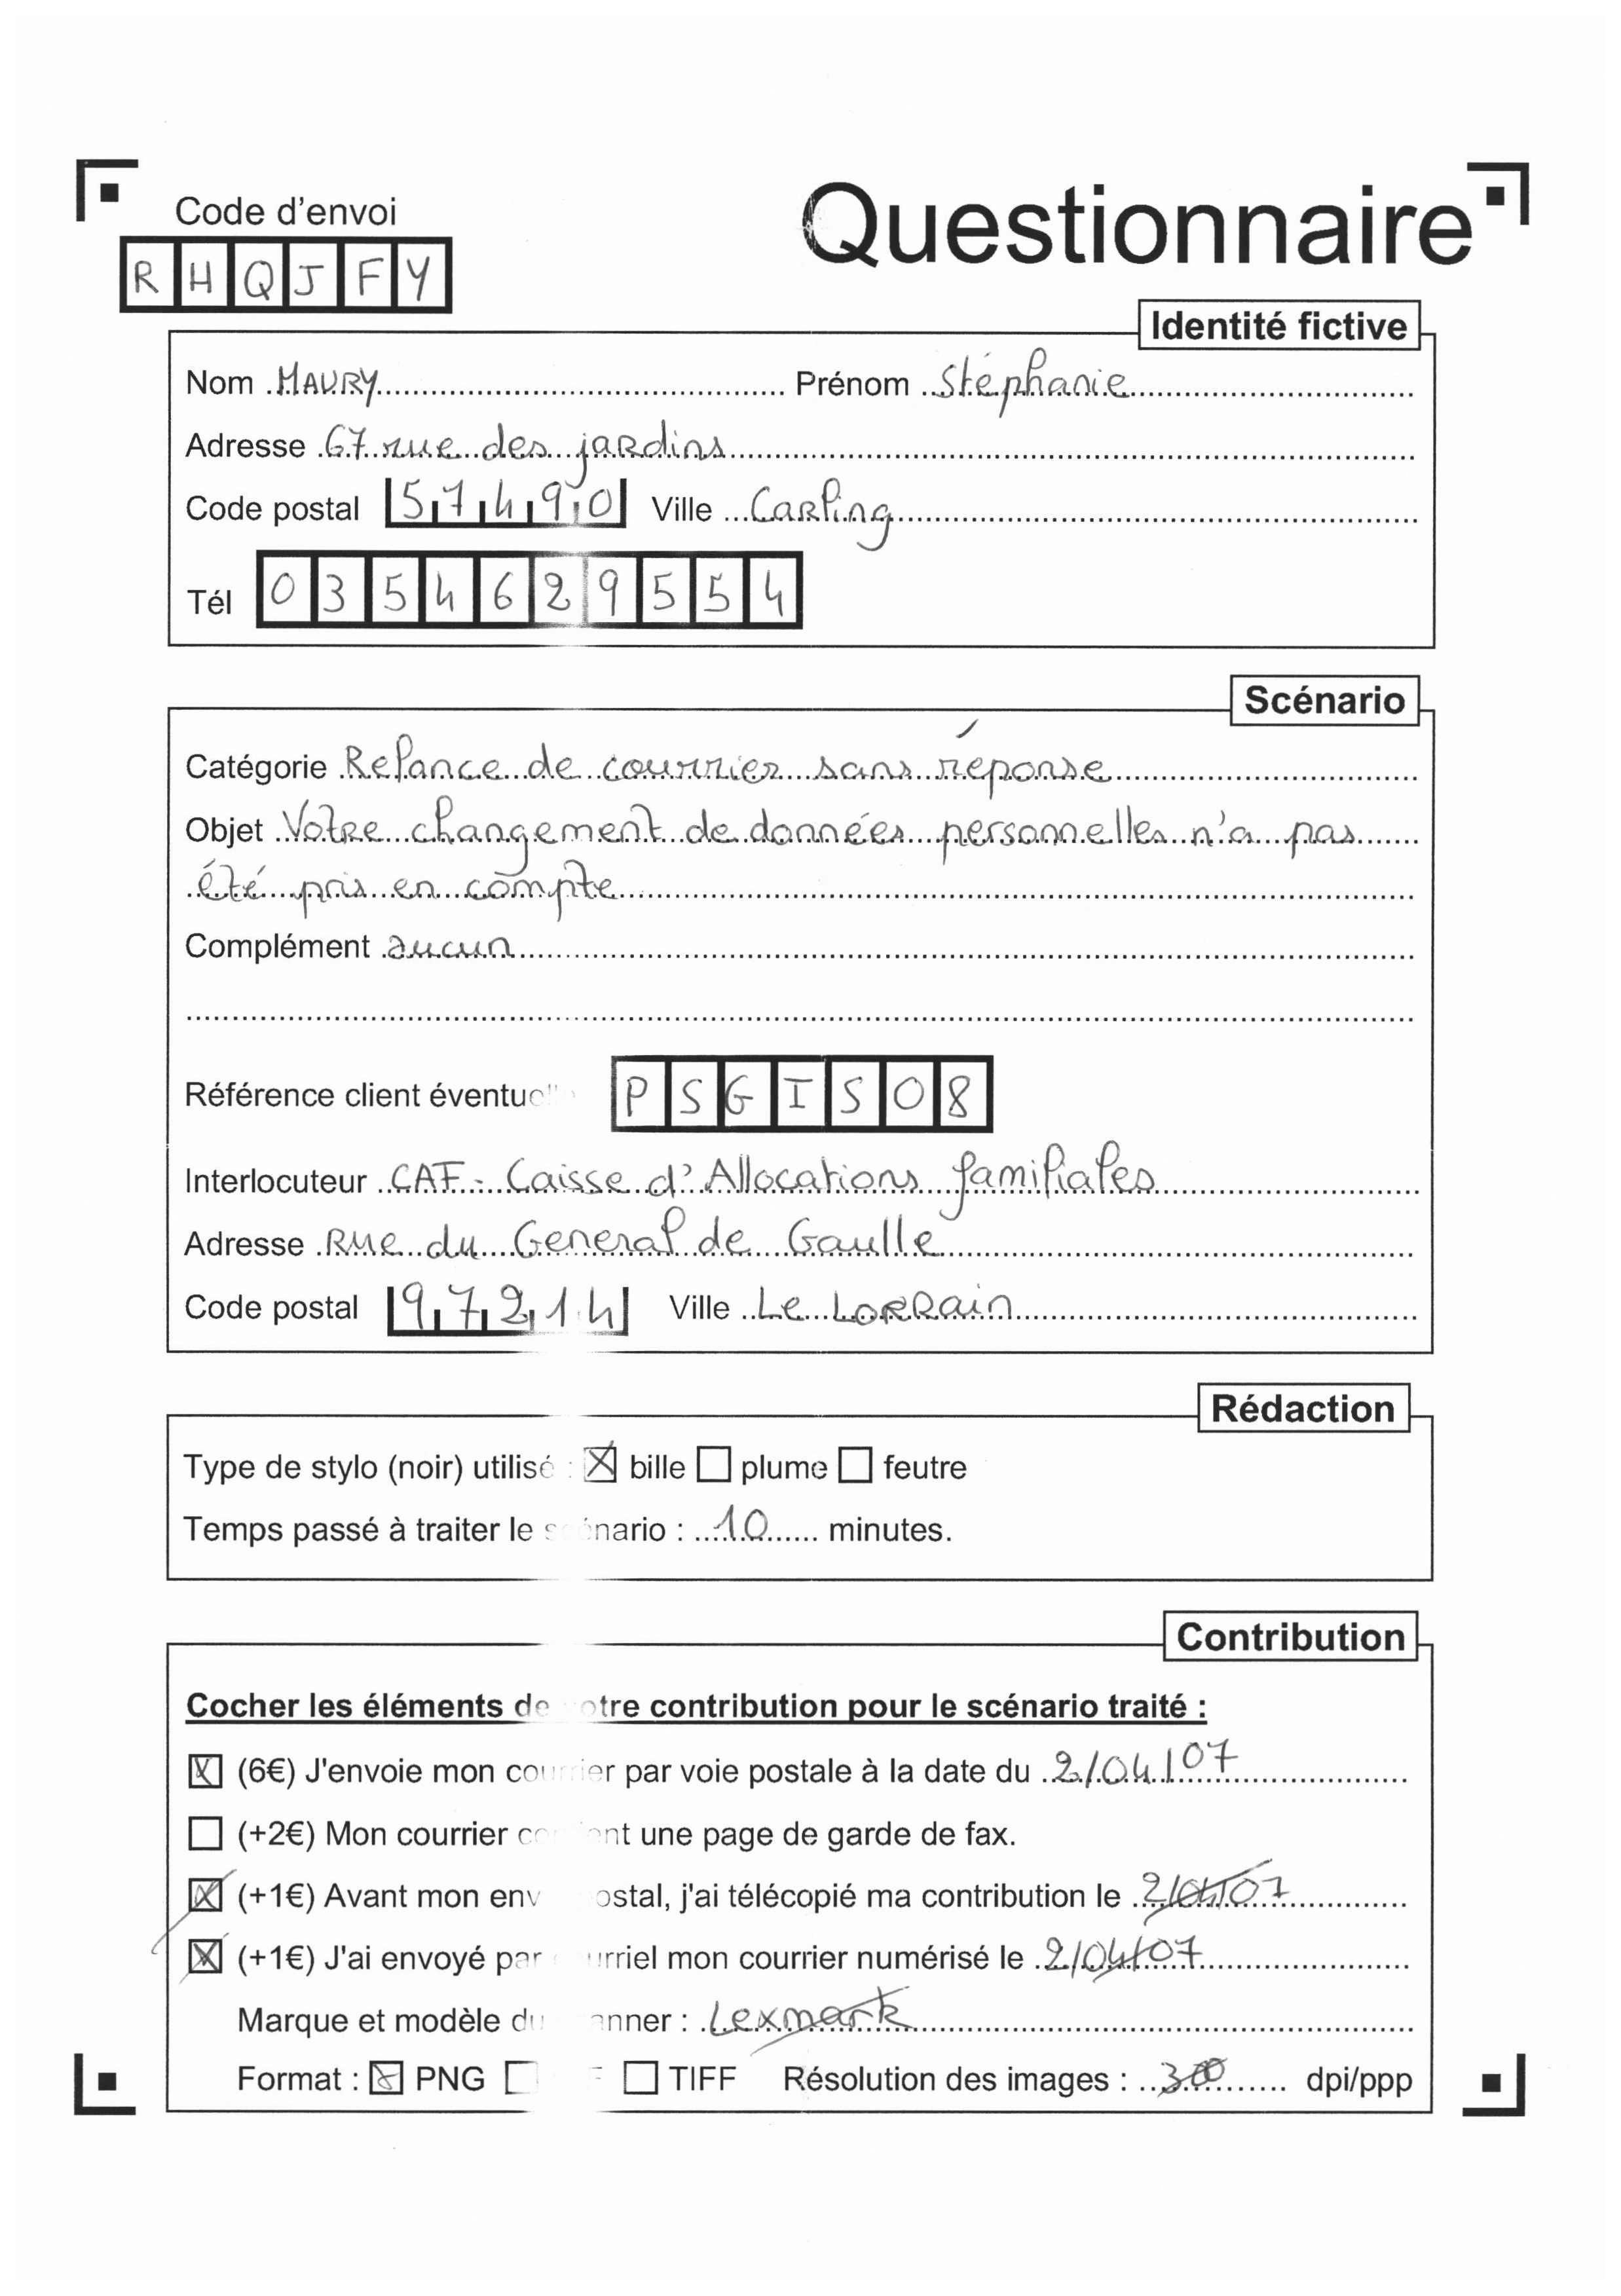 Code d'envoi
Questionnaire
R H Q J F Y
Identité fictive
Nom MAURY Prénom Stéphanie
Adresse 67 rue des jardins
Code postal 57490 Ville Carling
Tél 0354629554
Scénario
Catégorie Relance de courrier sans réponse
Objet Votre changement de données personnelles n'a pas
été pris en compte
Complément aucun
Référence client éventuelle PSGIS08
Interlocuteur CAF - Caisse d'Allocations familiales
Adresse Rue du General de Gaulle
Code postal 97214 Ville Le Lorrain
Rédaction
Type de stylo (noir) utilisé : bille plume feutre
Temps passé à traiter le scénario : 10 minutes.
Contribution
Cocher les éléments de votre contribution pour le scénario traité :
(6€) J'envoie mon courrier par voie postale à la date du 2/04/07
(+2€) Mon courrier contient une page de garde de fax.
(+1€) Avant mon env ostal, j'ai télécopié ma contribution le 2/04/07
(+1€) J'ai envoyé par urriel mon courrier numérisé le 2/04/07
Marque et modèle du anner : Lexmark
Format : PNG TIFF Résolution des images : 300 dpi/ppp